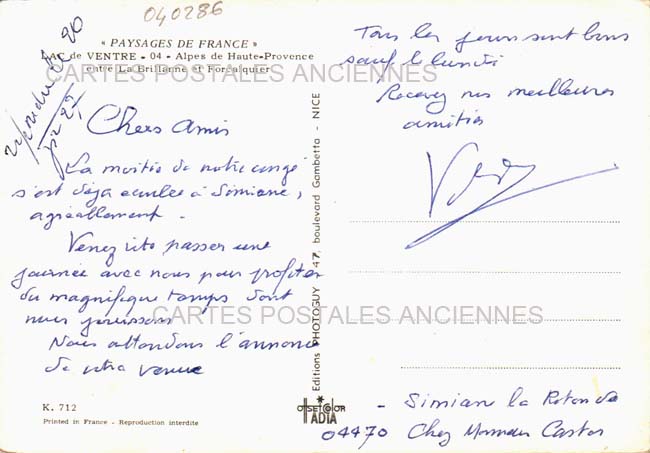 040286
« PAYSAGES DE FRANCE »
LAC de VENTRE - 04 - Alpes de Haute-Provence
entre La Brillanne et Forcalquier
CARTES POSTALES ANCIENNES
Chers amis
La moitié de notre congé
s'est déjà écoulée à Simiane,
agréablement.
Venez vite passer une
journée avec nous pour profiter
du magnifique temps dont
nous jouissons
Nous attendons l'annonce
de votre venue
K. 712
Printed in France - Reproduction interdite
Editions PHOTOGUY 47, boulevard Gambetta - NICE
OFFSET COLOR
ADIA
Tous les jours sont bons
sauf le lundi
Recevez nos meilleures
amitiés
CARTES POSTALES ANCIENNES
- Simian la Rotonde
04470 Chez Castor